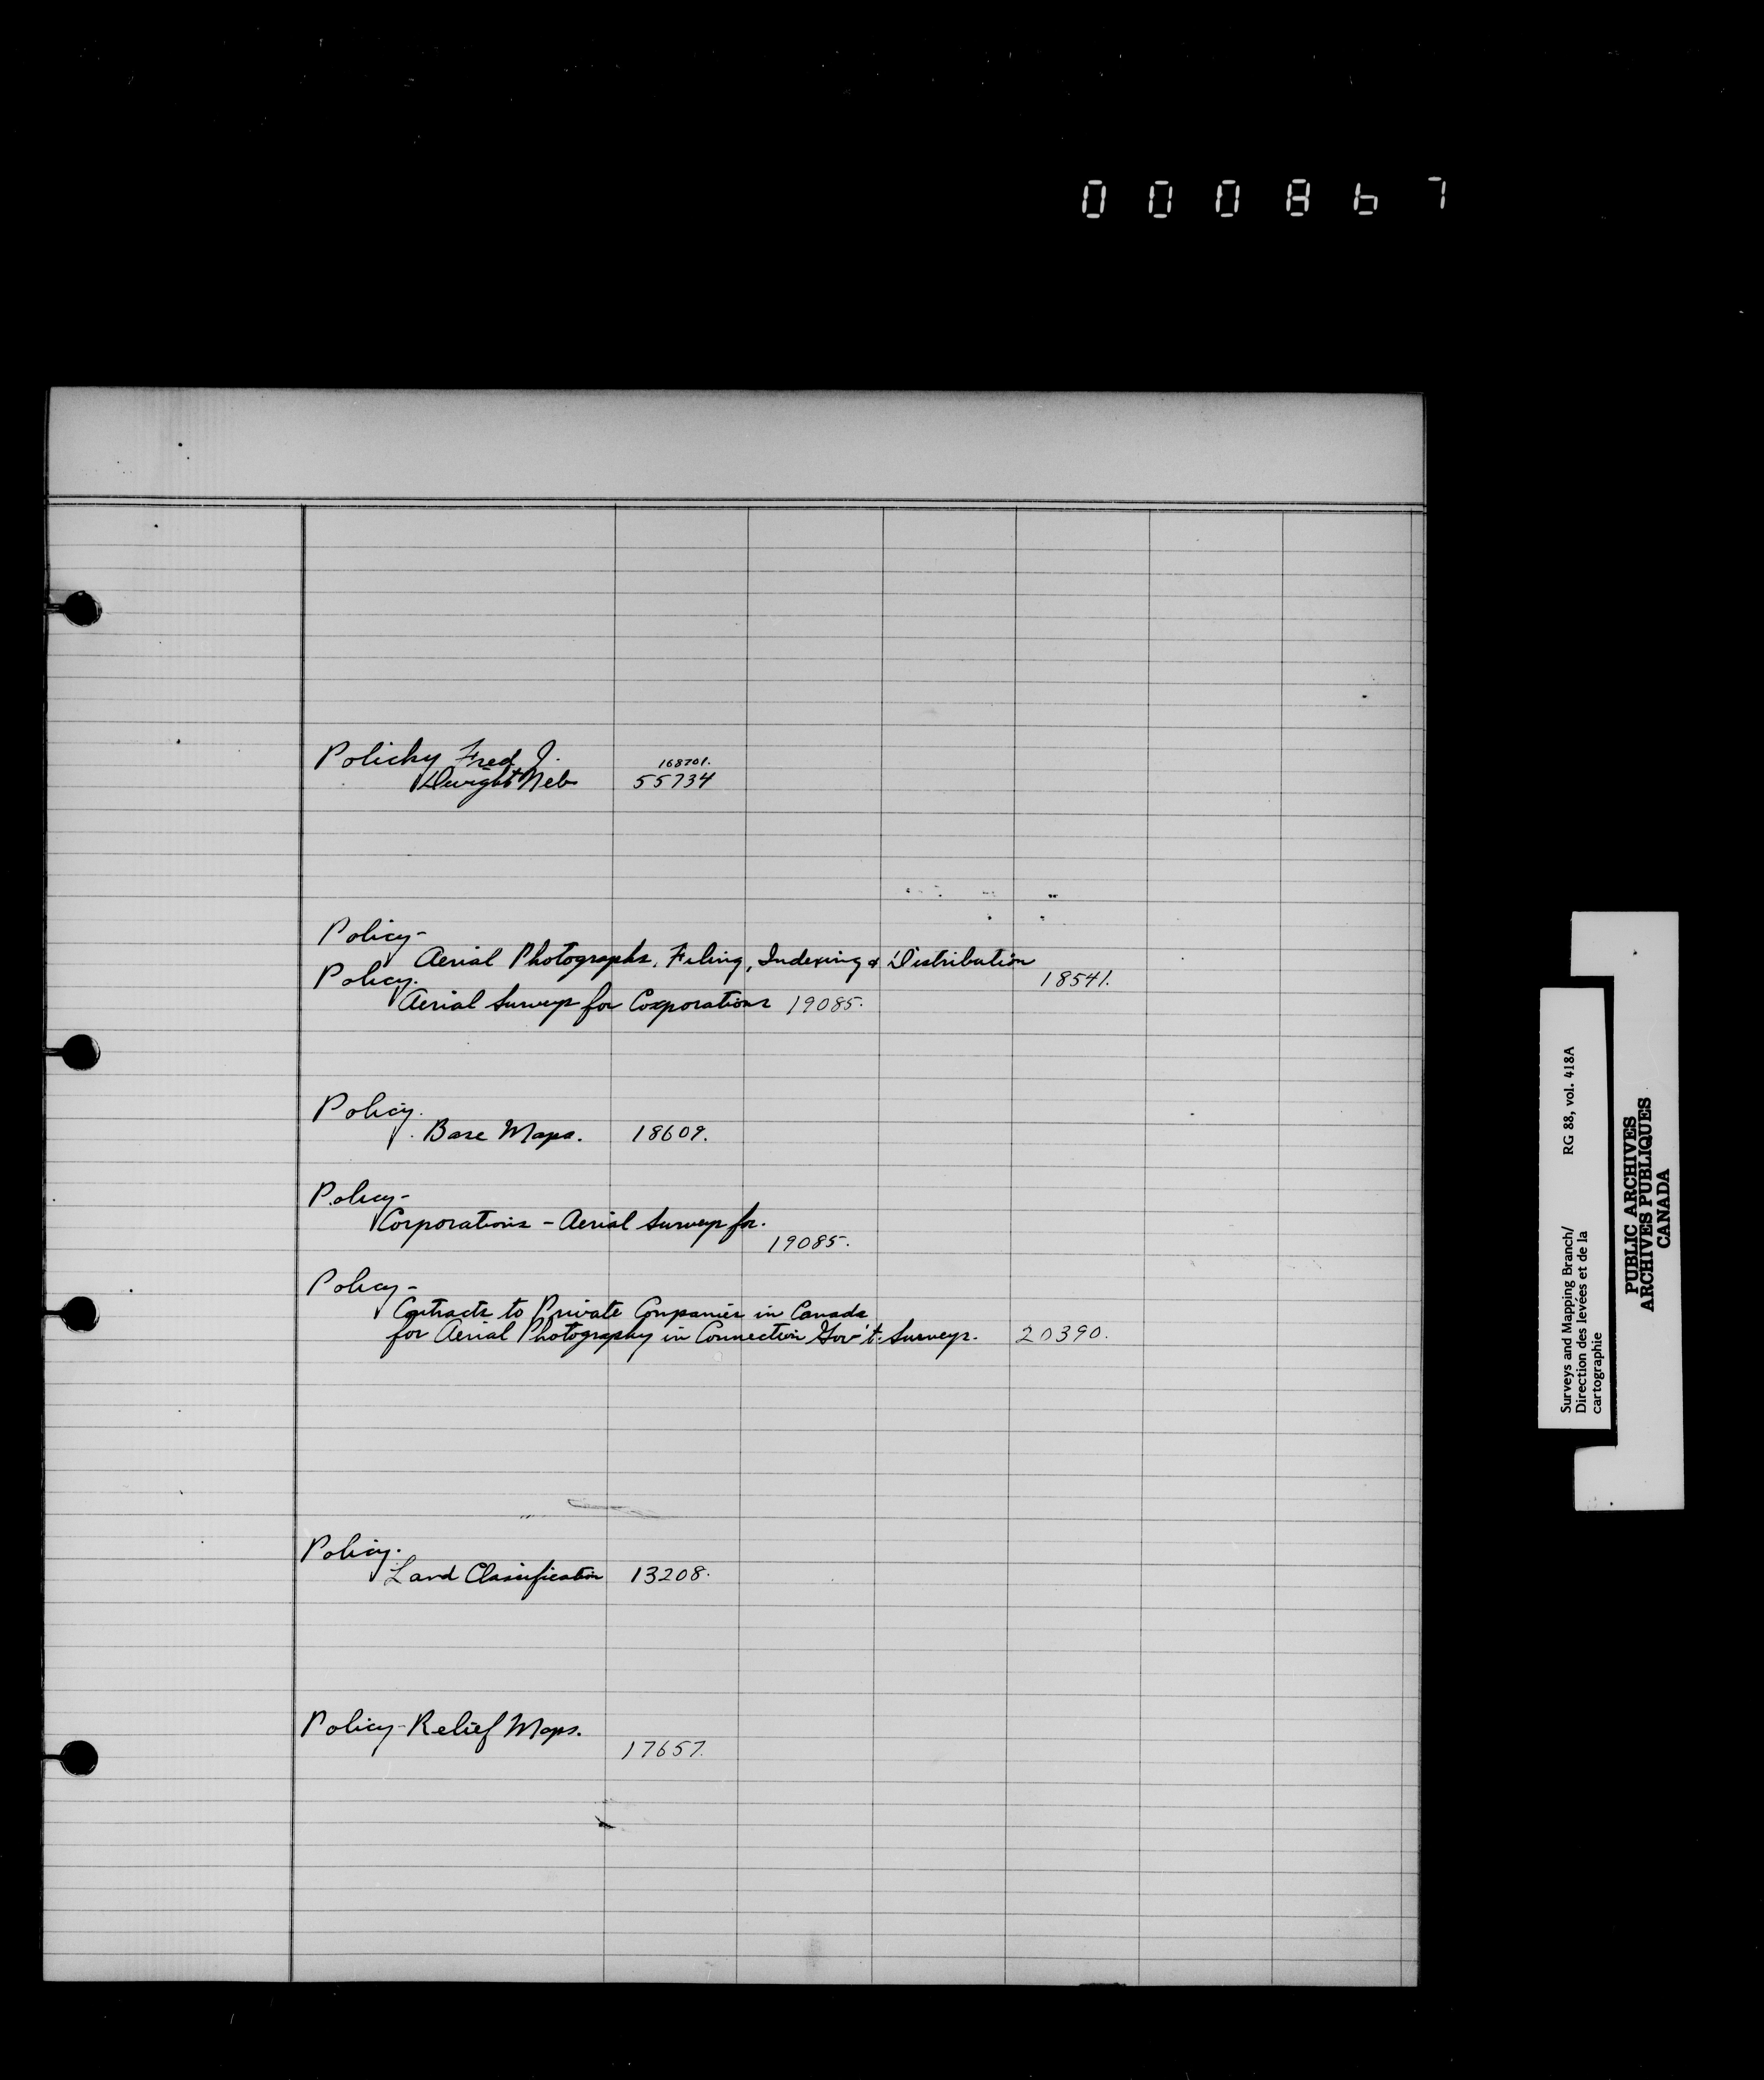 000867
Policky Fred J.
Dwight Neb
168701.
55734
Policy-
Aerial Photographs, Filing, Indexing & Distribution
18541.
Policy.
Aerial Surveys for Corporations 19085.
Policy.
Base Maps. 18609.
Policy-
Corporations - Aerial Surveys for.
19085.
Policy-
Contracts to Private Companies in Canada
for Aerial Photography in Connection Gov't. Surveys. 20390.
Policy.
Land Classification 13208.
Policy-Relief Maps.
17657.
Surveys and Mapping Branch/ RG 88, vol. 418A
Direction des levées et de la
cartographie
PUBLIC ARCHIVES
ARCHIVES PUBLIQUES
CANADA